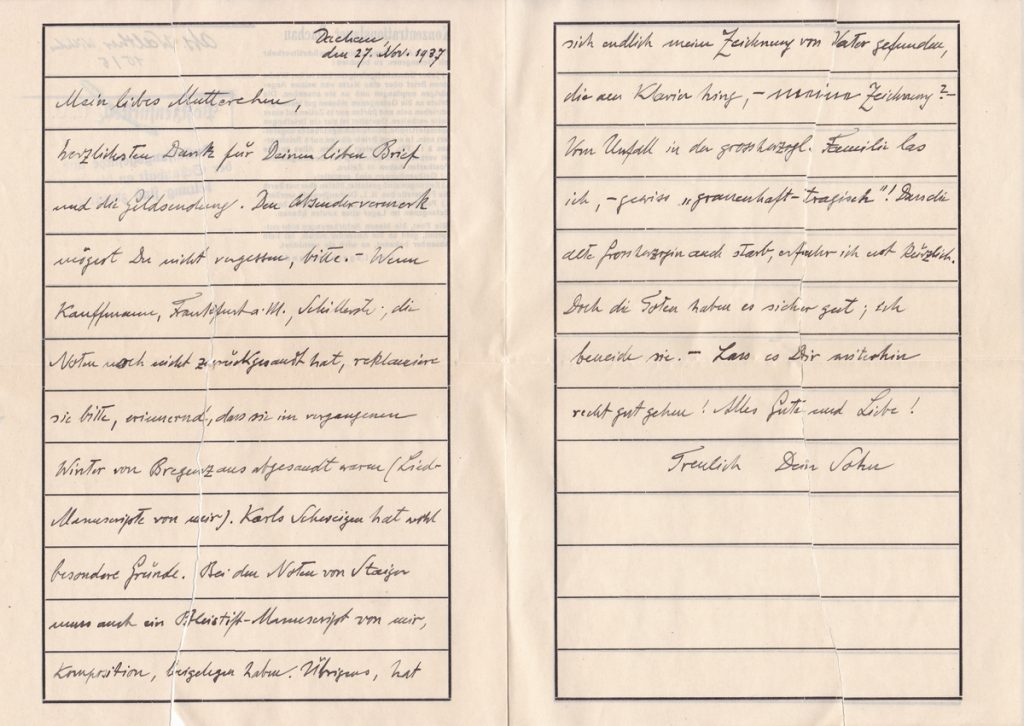 Dachau,
den 27. Nov. 1937
Mein liebes Mutterchen,
herzlichsten Dank für Deinen lieben Brief
und die Geldsendung. Den Absendervermerk
mögest Du nicht vergessen, bitte. – Wenn
Kauffmann, Frankfurt a. M., Schillerstr., die
Noten noch nicht zurückgesandt hat, reklamiere
sie bitte, erinnernd, dass sie im vergangenen
Winter von Bregenz aus abgesandt waren (Lied-
Manuscripte von mir). Karls Schweigen hat wohl
besondere Gründe. Bei den Noten von Staiger
muss auch ein Bleistift-Manuscript von mir,
Komposition, beigelegen haben. Übrigens, hat
sich endlich meine Zeichnung von Vater gefunden,
die am Klavier hing, – meine Zeichnung? –
Vom Unfall in der grossherzogl. Familie las
ich, – gewiss „grauenhaft-tragisch"! Dass die
alte Grossherzogin auch starb, erfuhr ich erst kürzlich.
Doch die Toten haben es sicher gut; ich
beneide sie. – Lass es Dir weiterhin
recht gut gehen! Alles Gute und Liebe!
Treulich Dein Sohn